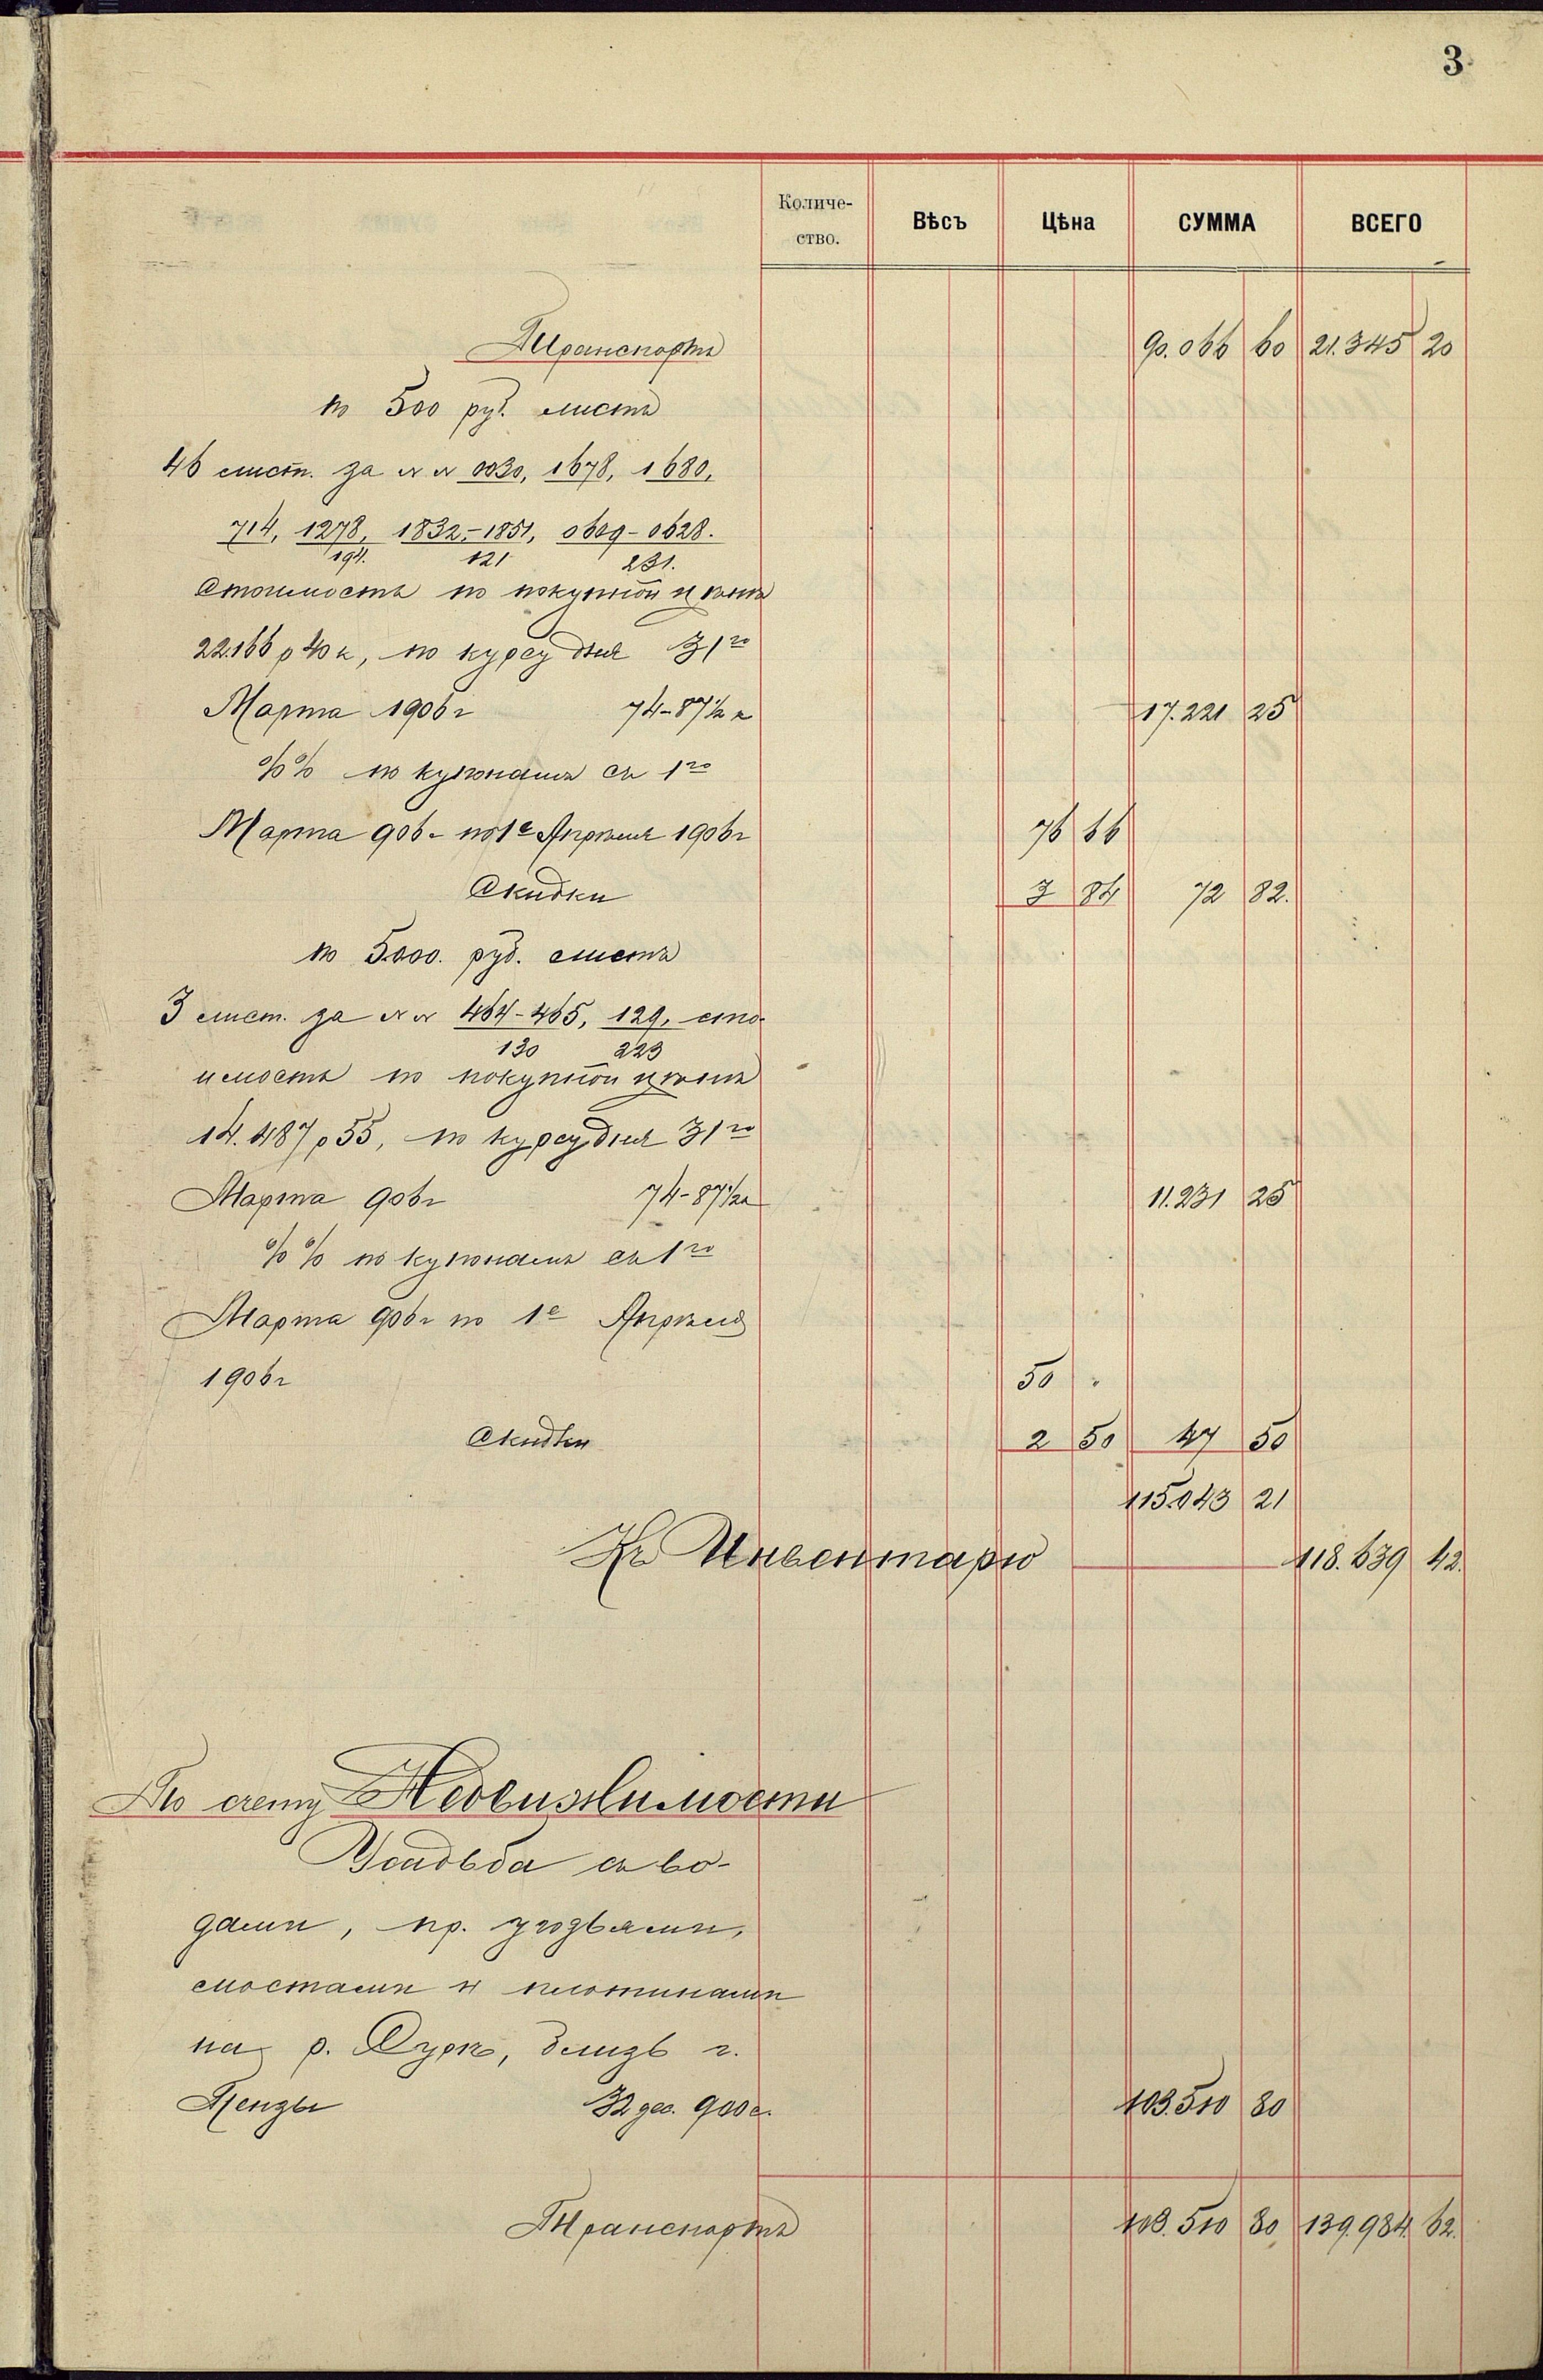 3
Количе-
ство.
Вѣсъ
Цѣна
СУММА
ВСЕГО
Транспортъ 90.066 60 21.345 20
по 500 руб. листъ
46 лист. за №№ 0030, 1678, 1680,
714, 1278, 1832-1851, 0609-0628.
194. 121 231.
Стоимость по покупной цѣнѣ
22.166 р 40 к, по курсу дня 31го
Марта 1906 г 74-87½ к 17.221 25
%% по купонамъ съ 1го
Марта 906 г по 1е Апрѣля 1906 г 76 66
Скидки 3 84 72 82.
по 5.000. руб. листъ
3 лист. за №№ 464-465, 129, сто-
130 223
имость по покупной цѣнѣ
14.487 р 55, по курсу дня 31го
Марта 906 г 74-87½ к 11.231 25
%% по купонамъ съ 1го
Марта 906 г по 1е Апрѣля
1906 г 50 "
Скидки 2 50 47 50
115.043 21
Къ Инвентарю 118.639 42.
По счету Недвижимости
Усадьба съ во-
дами, пр. угодьями,
мостами и плотинами
на р. Сурѣ, близь г.
Пензы 32 дес. 900 с. 103.510 80
Транспортъ 103.510 80 139.984. 62.